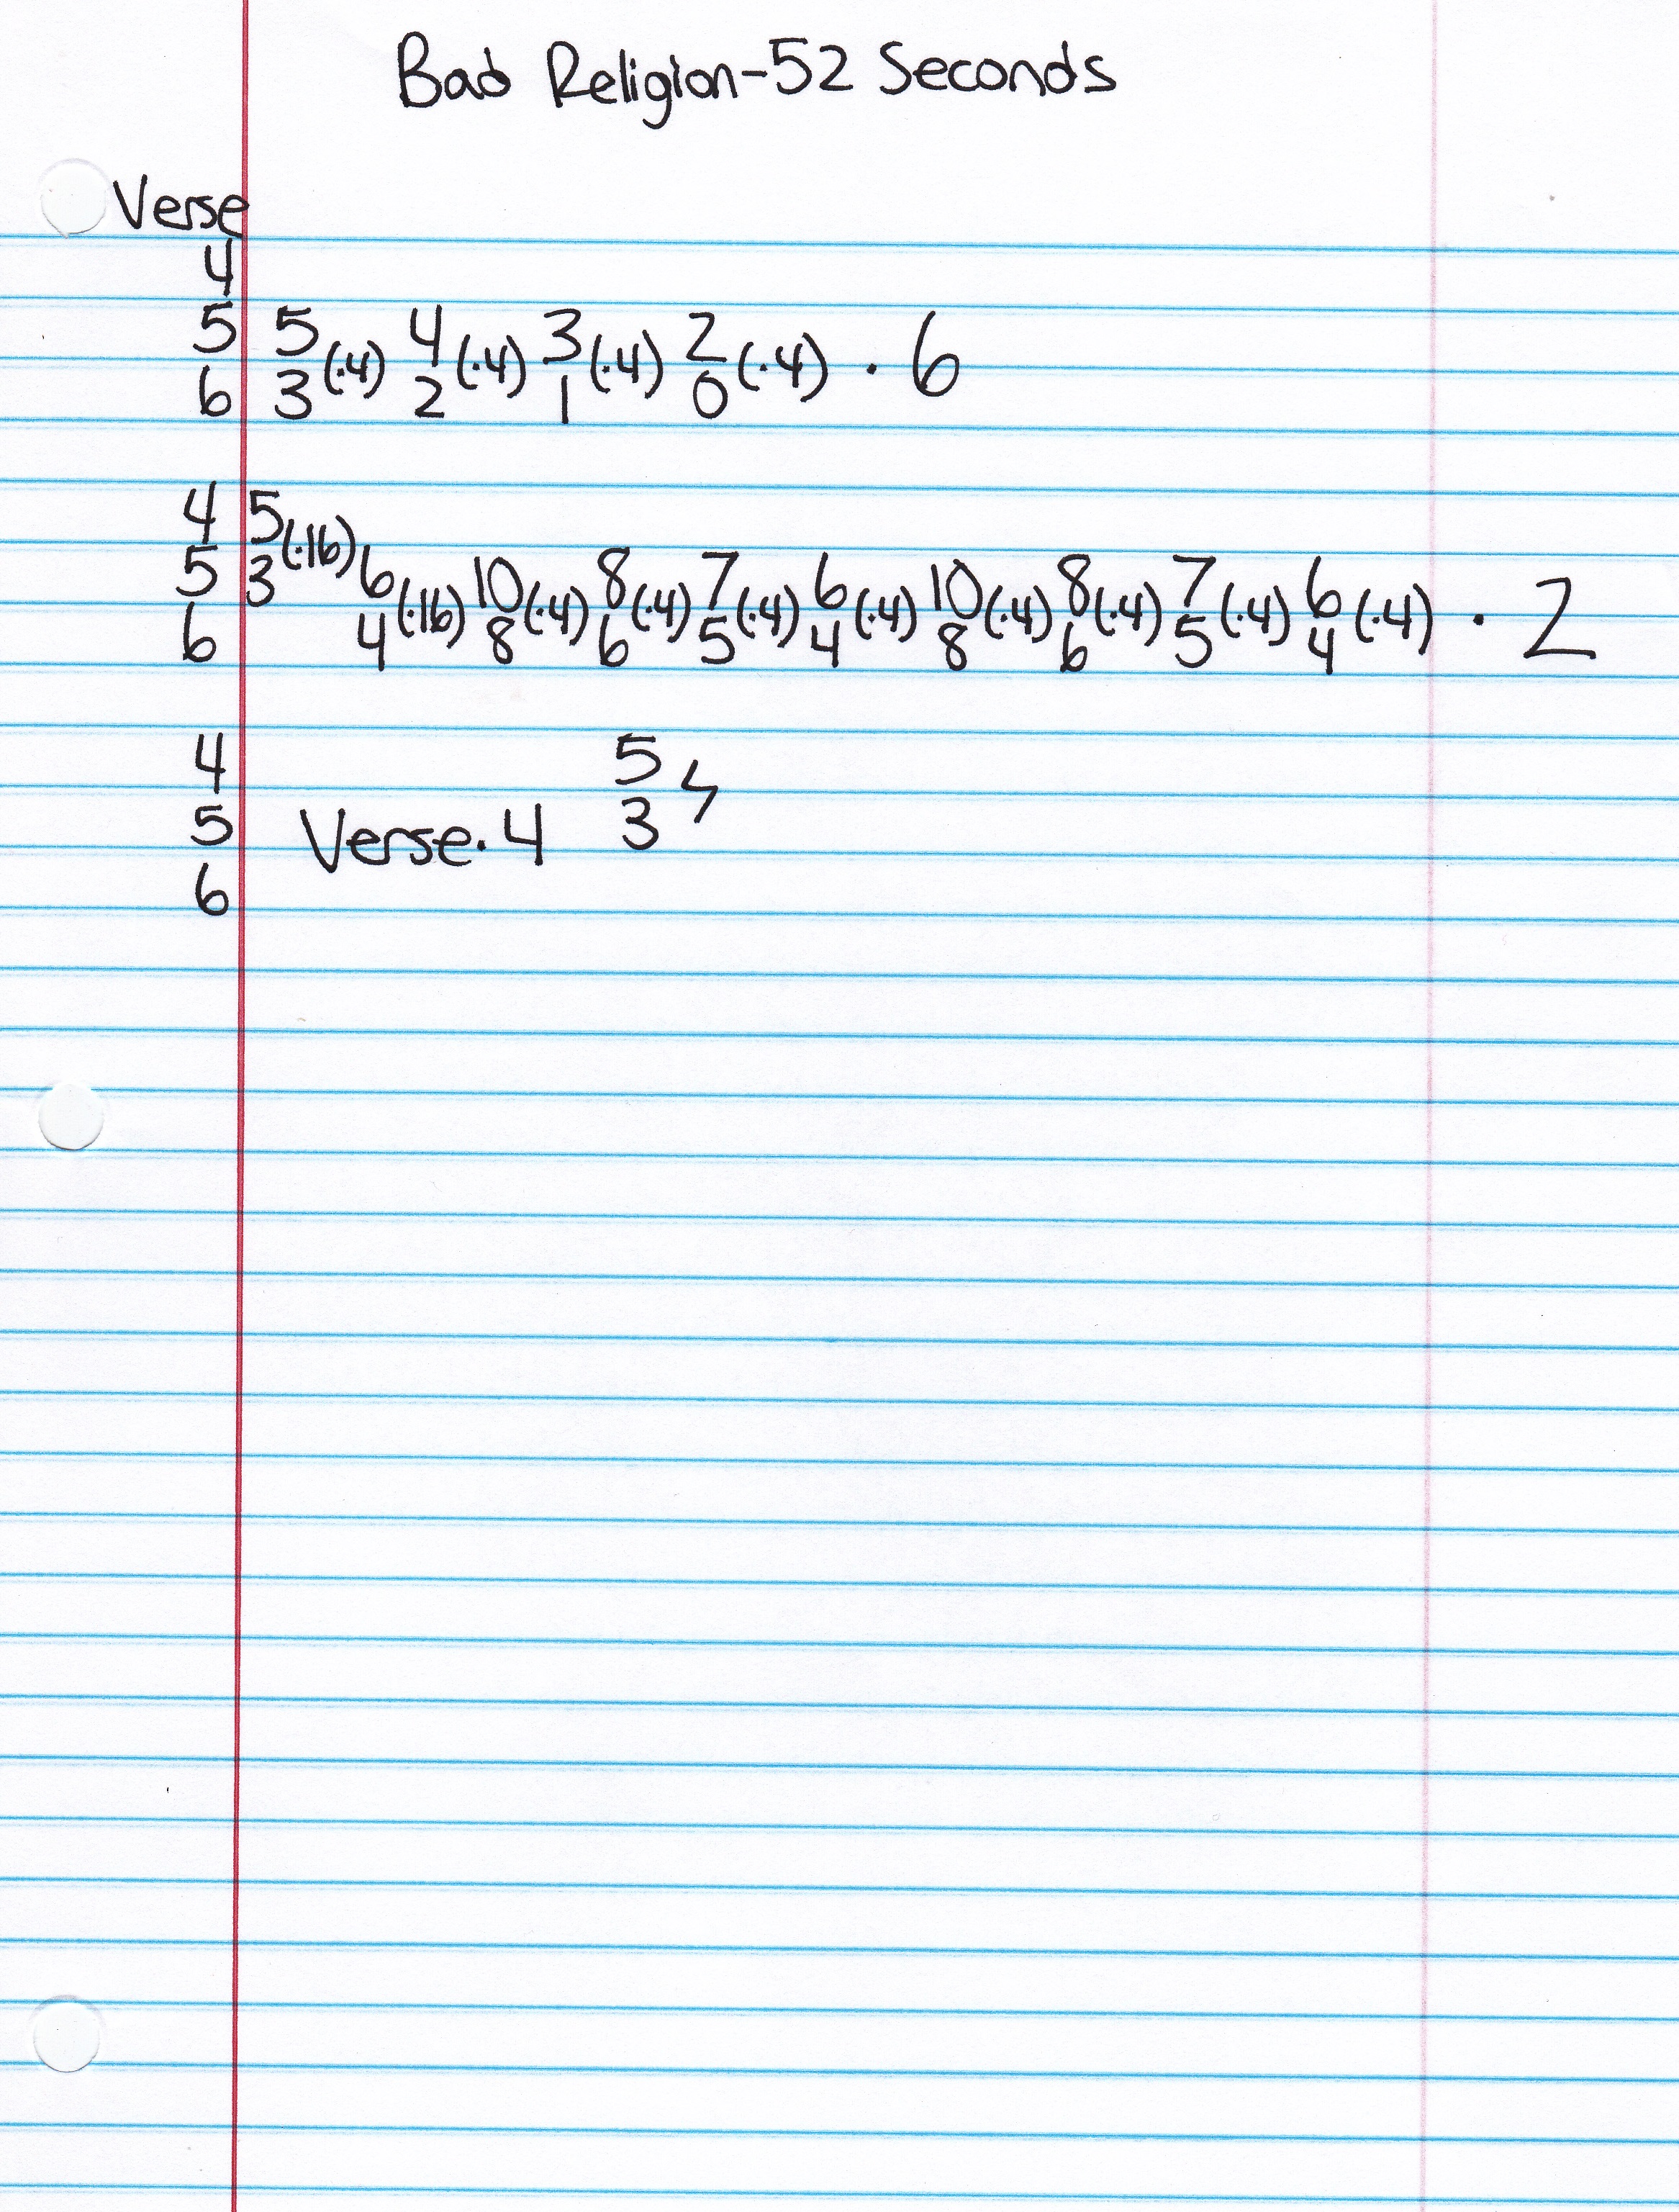 Bad Religion-52 Seconds
Verse
4
5 5 4 3 2
(·4) (·4) (·4) (·4) · 6
6 3 2 1 0
4 5
(·16)
5 3 6 10 8 7 6 10 8 7 6
(·16) (·4) (·4) (·4) (·4) (·4) (·4) (·4) (·4) · 2
6 4 8 6 5 4 8 6 5 4
4 5
5 Verse · 4 3
6